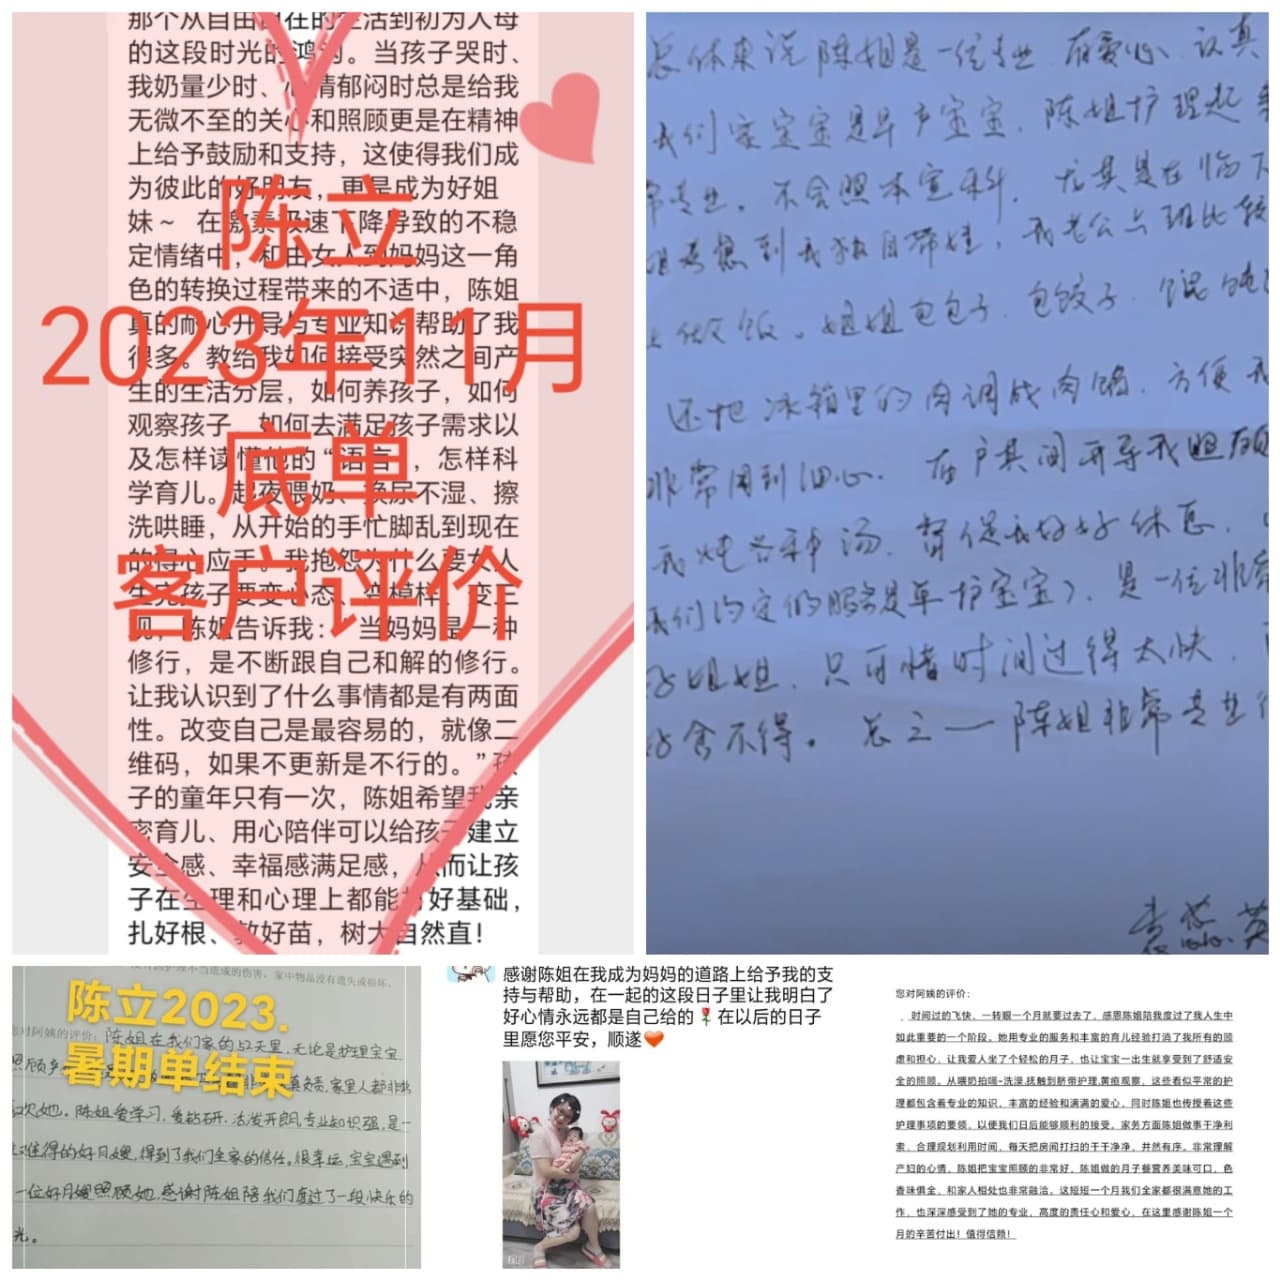 那个从自由自在的生活到初为人母
的这段时光的鸿沟。当孩子哭时、
我奶量少时、心情郁闷时总是给我
无微不至的关心和照顾更是在精神
上给予鼓励和支持，这使得我们成
为彼此的好朋友，更是成为好姐
妹~ 在激素极速下降导致的不稳
定情绪中，和由女人到妈妈这一角
色的转换过程带来的不适中，陈姐
真的耐心开导与专业知识帮助了我
很多。教给我如何接受突然之间产
生的生活分层，如何养孩子，如何
观察孩子，如何去满足孩子需求以
及怎样读懂他的“语言”，怎样科
学育儿。起夜喂奶、换尿不湿、擦
洗哄睡，从开始的手忙脚乱到现在
的得心应手。我抱怨为什么要女人
生完孩子要变心态、变模样、变三
观，陈姐告诉我：“当妈妈是一种
修行，是不断跟自己和解的修行。
让我认识到了什么事情都是有两面
性。改变自己是最容易的，就像二
维码，如果不更新是不行的。”孩
子的童年只有一次，陈姐希望我亲
密育儿、用心陪伴可以给孩子建立
安全感、幸福感满足感，从而让孩
子在生理和心理上都能打好基础，
扎好根、教好苗，树大自然直！
陈立
2023年11月
底单
客户评价
总体来说陈姐是一位专业、有爱心、认真
我们家宝宝是早产宝宝，陈姐护理起来
常专业，不会照本宣科，尤其是在临下
姐考虑到我独自带娃，我老公上班比较
上做饭。姐姐包包子、包饺子、馄饨
还把冰箱里的肉调成肉馅，方便我
非常周到细心。在户其间开导我照顾
我炖各种汤，督促我好好休息，
我们约定的服务是单护宝宝），是一位非常
好姐姐，只可惜时间过得太快，
好舍不得。总之一陈姐非常专业
陈立2023.
暑期单结束
家中物品没有遗失或损坏。
您对阿姨的评价：陈姐在我们家的52天里，无论是护理宝宝
家里人都非常
喜欢她。陈姐爱学习，爱钻研，活泼开朗，专业知识强，是一
难得的好月嫂，得到了我们全家的信任。很幸运，宝宝遇到
一位好月嫂照顾她，感谢陈姐陪我们度过了一段快乐的
光。
感谢陈姐在我成为妈妈的道路上给予我的支
持与帮助，在一起的这段日子里让我明白了
好心情永远都是自己给的🌹在以后的日子
里愿您平安，顺遂❤️
您对阿姨的评价：
时间过的飞快，一转眼一个月就要过去了，感恩陈姐陪我度过了我人生中
如此重要的一个阶段。她用专业的服务和丰富的育儿经验打消了我所有的顾
虑和担心，让我爱人坐了个轻松的月子，也让宝宝一出生就享受到了舒适安
全的照顾。从喂奶拍嗝~洗澡,抚触到脐带护理,黄疸观察，这些看似平常的护
理都包含着专业的知识，丰富的经验和满满的爱心，同时陈姐也传授着这些
护理事项的要领，以便我们日后能够顺利的接受。家务方面陈姐做事干净利
索，合理规划利用时间，每天把房间打扫的干干净净，井然有序。非常理解
产妇的心情，陈姐把宝宝照顾的非常好，陈姐做的月子餐营养美味可口，色
香味俱全，和家人相处也非常融洽，这短短一个月我们全家都很满意她的工
作，也深深感受到了她的专业，高度的责任心和爱心，在这里感谢陈姐一个
月的辛苦付出！值得信赖！